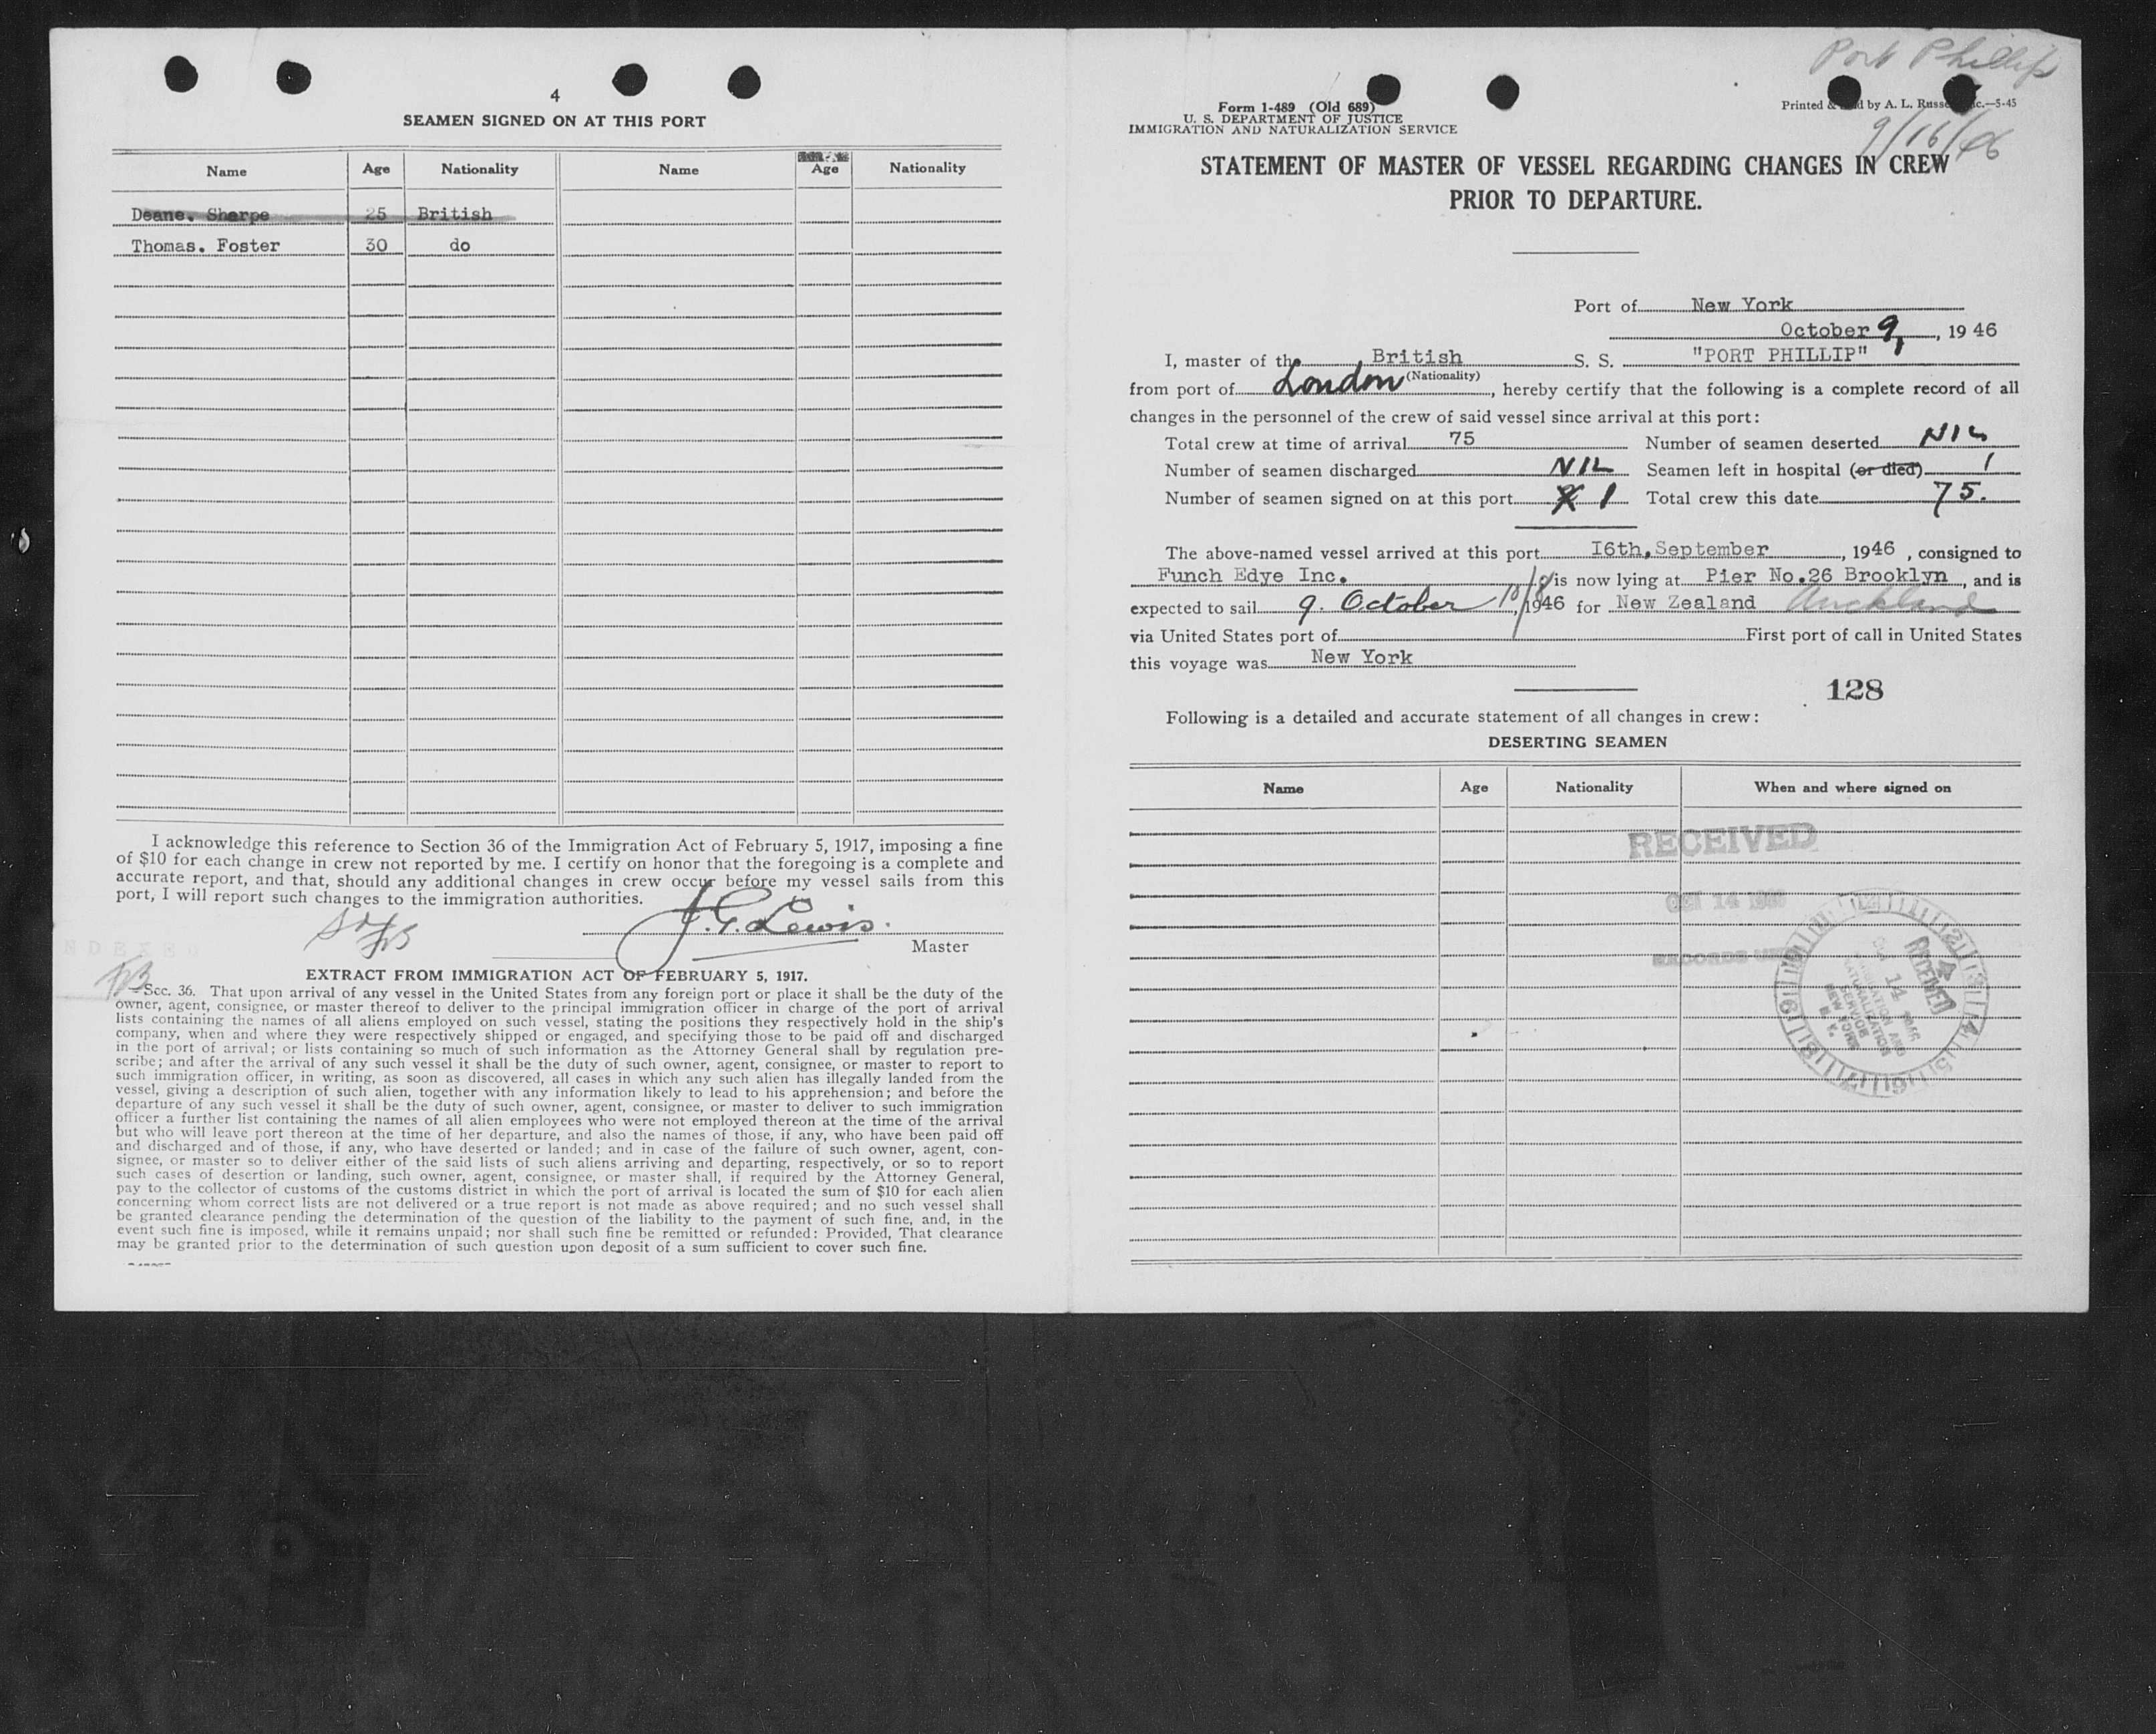 4
SEAMEN SIGNED ON AT THIS PORT
Name Age Nationality Name Age Nationality
Deane. Sharpe 25 British
Thomas. Foster 30 do
I acknowledge this reference to Section 36 of the Immigration Act of February 5, 1917, imposing a fine
of $10 for each change in crew not reported by me. I certify on honor that the foregoing is a complete and
accurate report, and that, should any additional changes in crew occur before my vessel sails from this
port, I will report such changes to the immigration authorities.
J. G. Lewis.
Master
EXTRACT FROM IMMIGRATION ACT OF FEBRUARY 5, 1917.
Sec. 36. That upon arrival of any vessel in the United States from any foreign port or place it shall be the duty of the
owner, agent, consignee, or master thereof to deliver to the principal immigration officer in charge of the port of arrival
lists containing the names of all aliens employed on such vessel, stating the positions they respectively hold in the ship's
company, when and where they were respectively shipped or engaged, and specifying those to be paid off and discharged
in the port of arrival; or lists containing so much of such information as the Attorney General shall by regulation pre-
scribe; and after the arrival of any such vessel it shall be the duty of such owner, agent, consignee, or master to report to
such immigration officer, in writing, as soon as discovered, all cases in which any such alien has illegally landed from the
vessel, giving a description of such alien, together with any information likely to lead to his apprehension; and before the
departure of any such vessel it shall be the duty of such owner, agent, consignee, or master to deliver to such immigration
officer a further list containing the names of all alien employees who were not employed thereon at the time of the arrival
but who will leave port thereon at the time of her departure, and also the names of those, if any, who have been paid off
and discharged and of those, if any, who have deserted or landed; and in case of the failure of such owner, agent, con-
signee, or master so to deliver either of the said lists of such aliens arriving and departing, respectively, or so to report
such cases of desertion or landing, such owner, agent, consignee, or master shall, if required by the Attorney General,
pay to the collector of customs of the customs district in which the port of arrival is located the sum of $10 for each alien
concerning whom correct lists are not delivered or a true report is not made as above required; and no such vessel shall
be granted clearance pending the determination of the question of the liability to the payment of such fine, and, in the
event such fine is imposed, while it remains unpaid; nor shall such fine be remitted or refunded: Provided, That clearance
may be granted prior to the determination of such question upon deposit of a sum sufficient to cover such fine.
Port Phillip
Form 1-489 (Old 689)
Printed & by A. L. Russ c.—5-45
U. S. DEPARTMENT OF JUSTICE
IMMIGRATION AND NATURALIZATION SERVICE
9/16/46
STATEMENT OF MASTER OF VESSEL REGARDING CHANGES IN CREW
PRIOR TO DEPARTURE.
Port of New York
October 9, 1946
I, master of the British S. S. "PORT PHILLIP"
(Nationality)
from port of London, hereby certify that the following is a complete record of all
changes in the personnel of the crew of said vessel since arrival at this port:
Total crew at time of arrival 75 Number of seamen deserted NIL
Number of seamen discharged NIL Seamen left in hospital (or died) 1
Number of seamen signed on at this port 1 Total crew this date 75.
The above-named vessel arrived at this port I6th, September, 1946, consigned to
Funch Edye Inc. is now lying at Pier No.26 Brooklyn, and is
expected to sail 9. October 10/9/1946 for New Zealand Auckland
via United States port of First port of call in United States
this voyage was New York
128
Following is a detailed and accurate statement of all changes in crew:
DESERTING SEAMEN
Name Age Nationality When and where signed on
RECEIVED
14
RECORDS
RECEIVED
14 1946
IMMIGRATION AND
NATURALIZATION
SERVICE
NEW YORK
N. Y.